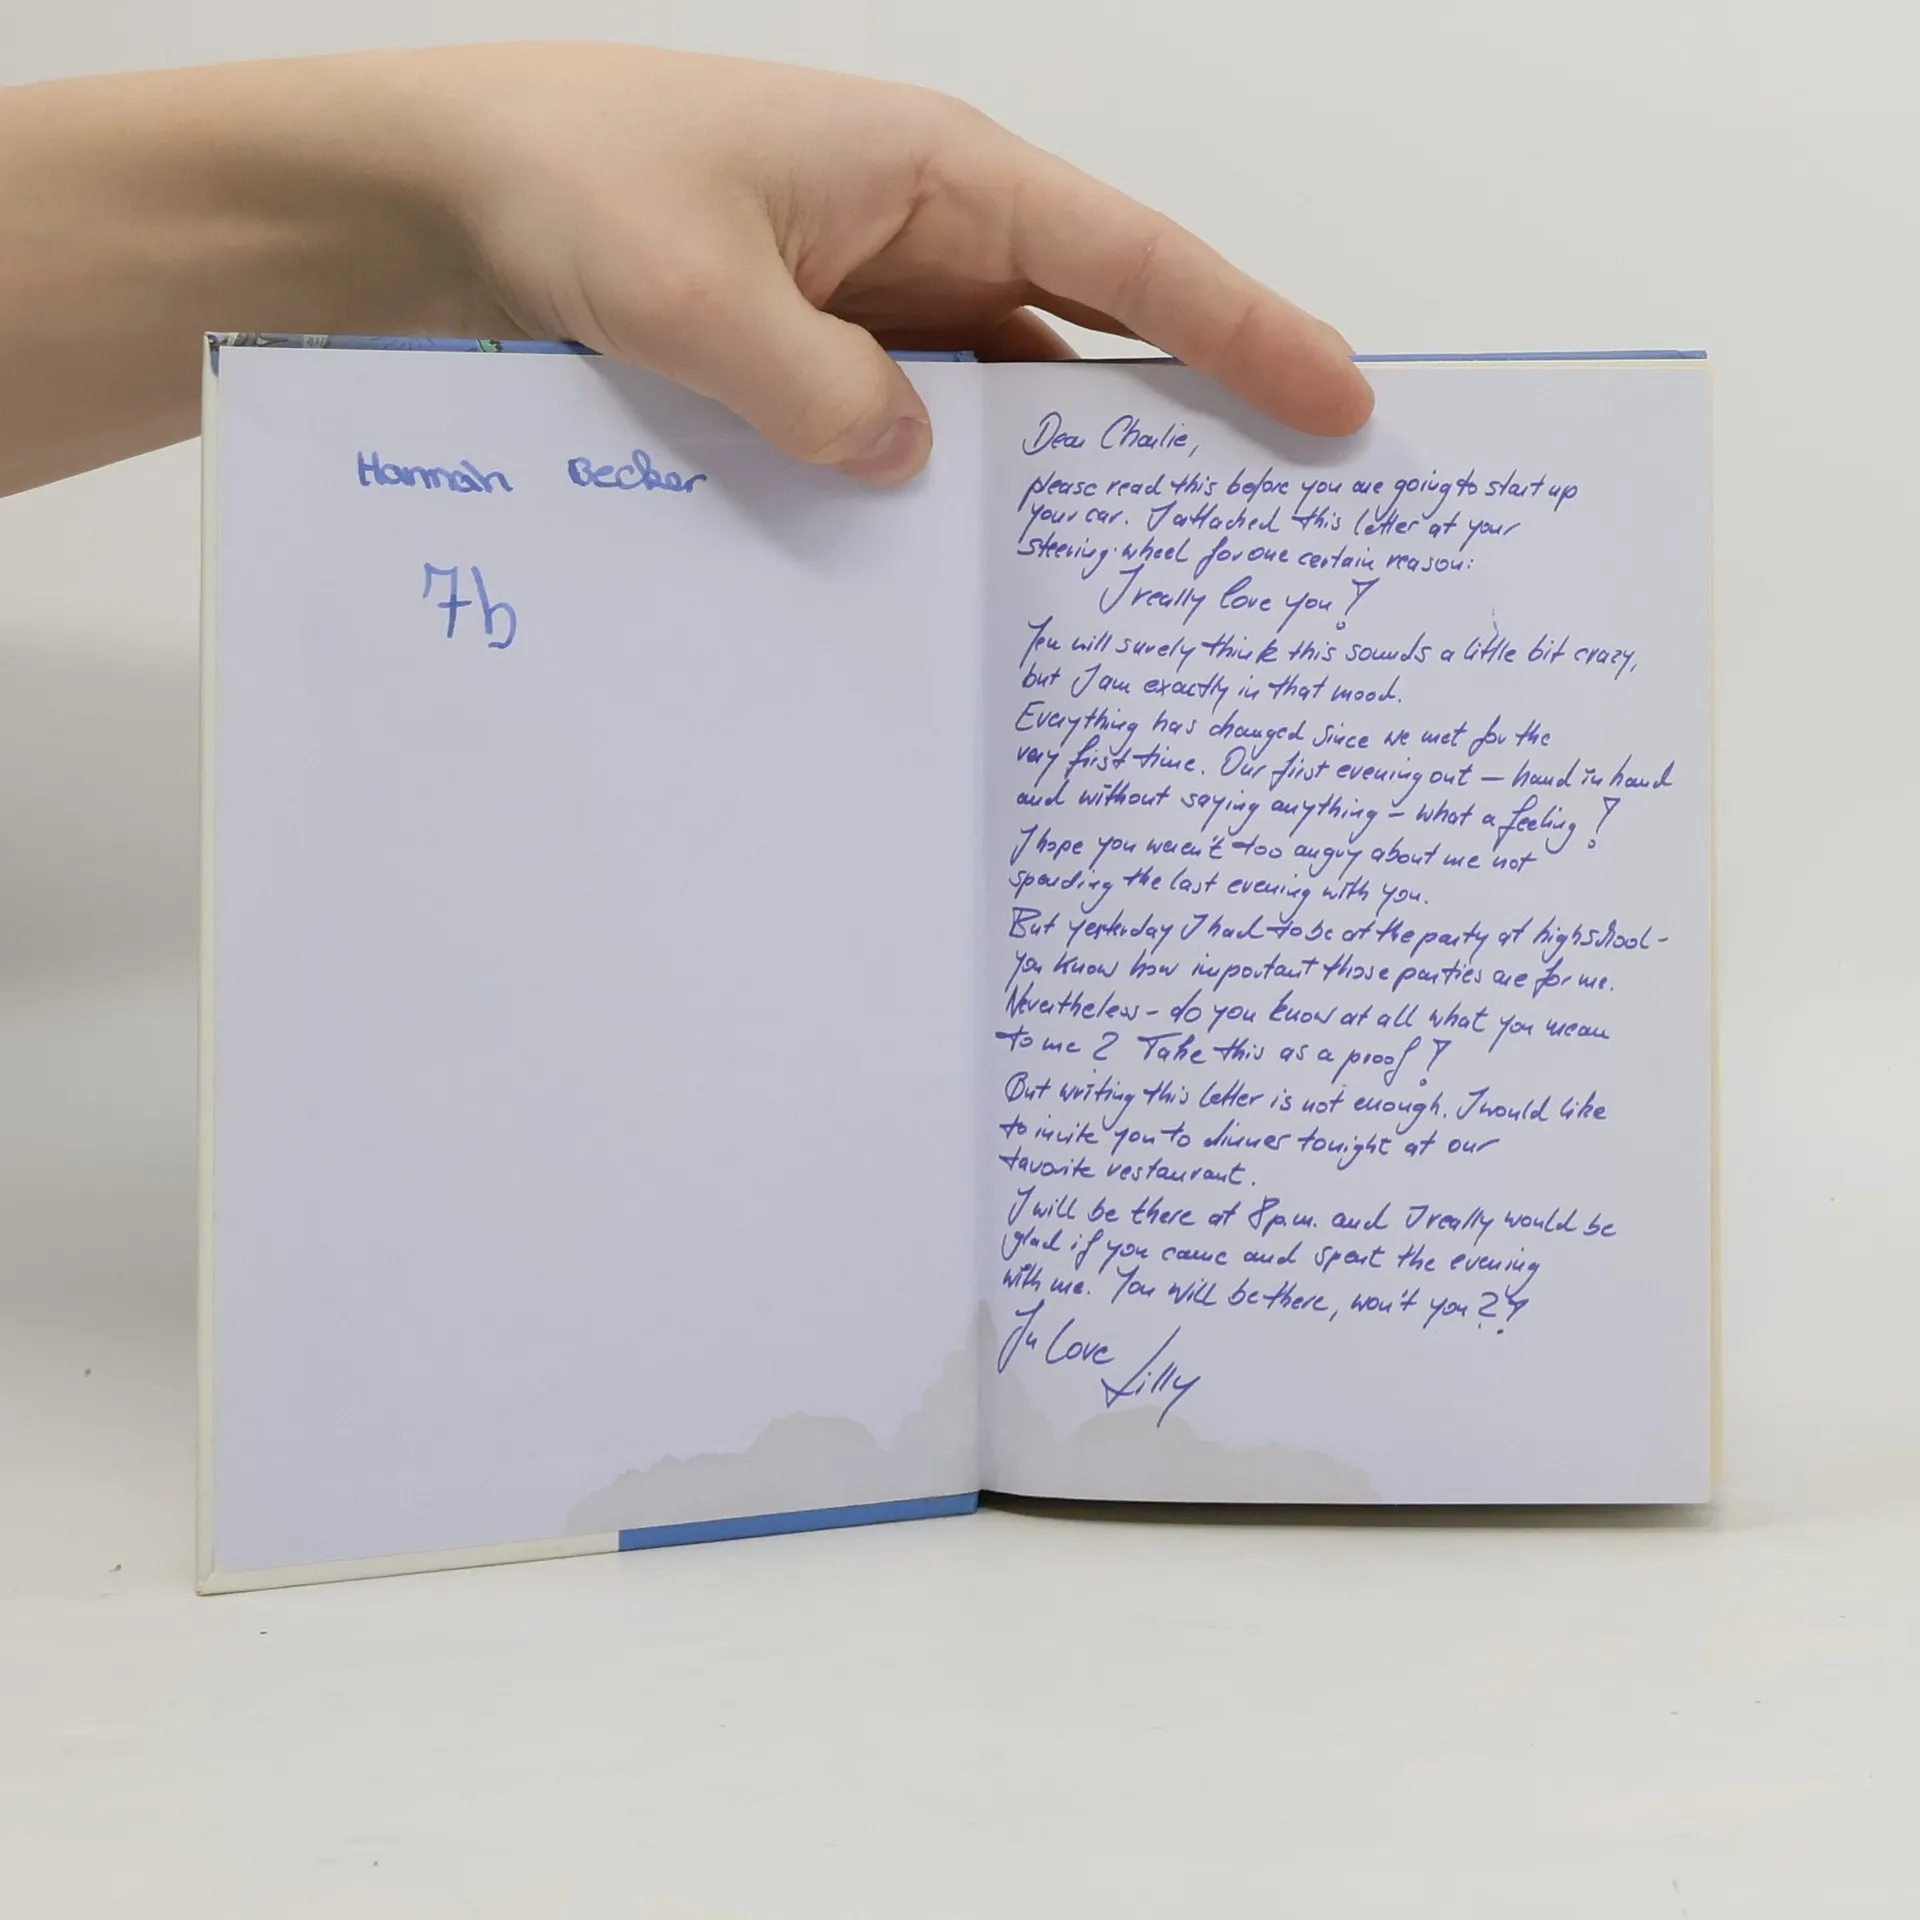 Hannah Becker
7b
Dear Charlie,
please read this before you are going to start up
your car. I attached this letter at your
steering-wheel for one certain reason:
I really love you!
You will surely think this sounds a little bit crazy,
but I am exactly in that mood.
Everything has changed since we met for the
very first time. Our first evening out – hand in hand
and without saying anything – what a feeling!
I hope you weren't too angry about me not
spending the last evening with you.
But yesterday I had to be at the party at highschool –
you know how important those parties are for me.
Nevertheless – do you know at all what you mean
to me? Take this as a proof!
But writing this letter is not enough. I would like
to invite you to dinner tonight at our
favorite restaurant.
I will be there at 8 p.m. and I really would be
glad if you came and spent the evening
with me. You will be there, won't you?!
In Love
Lilly